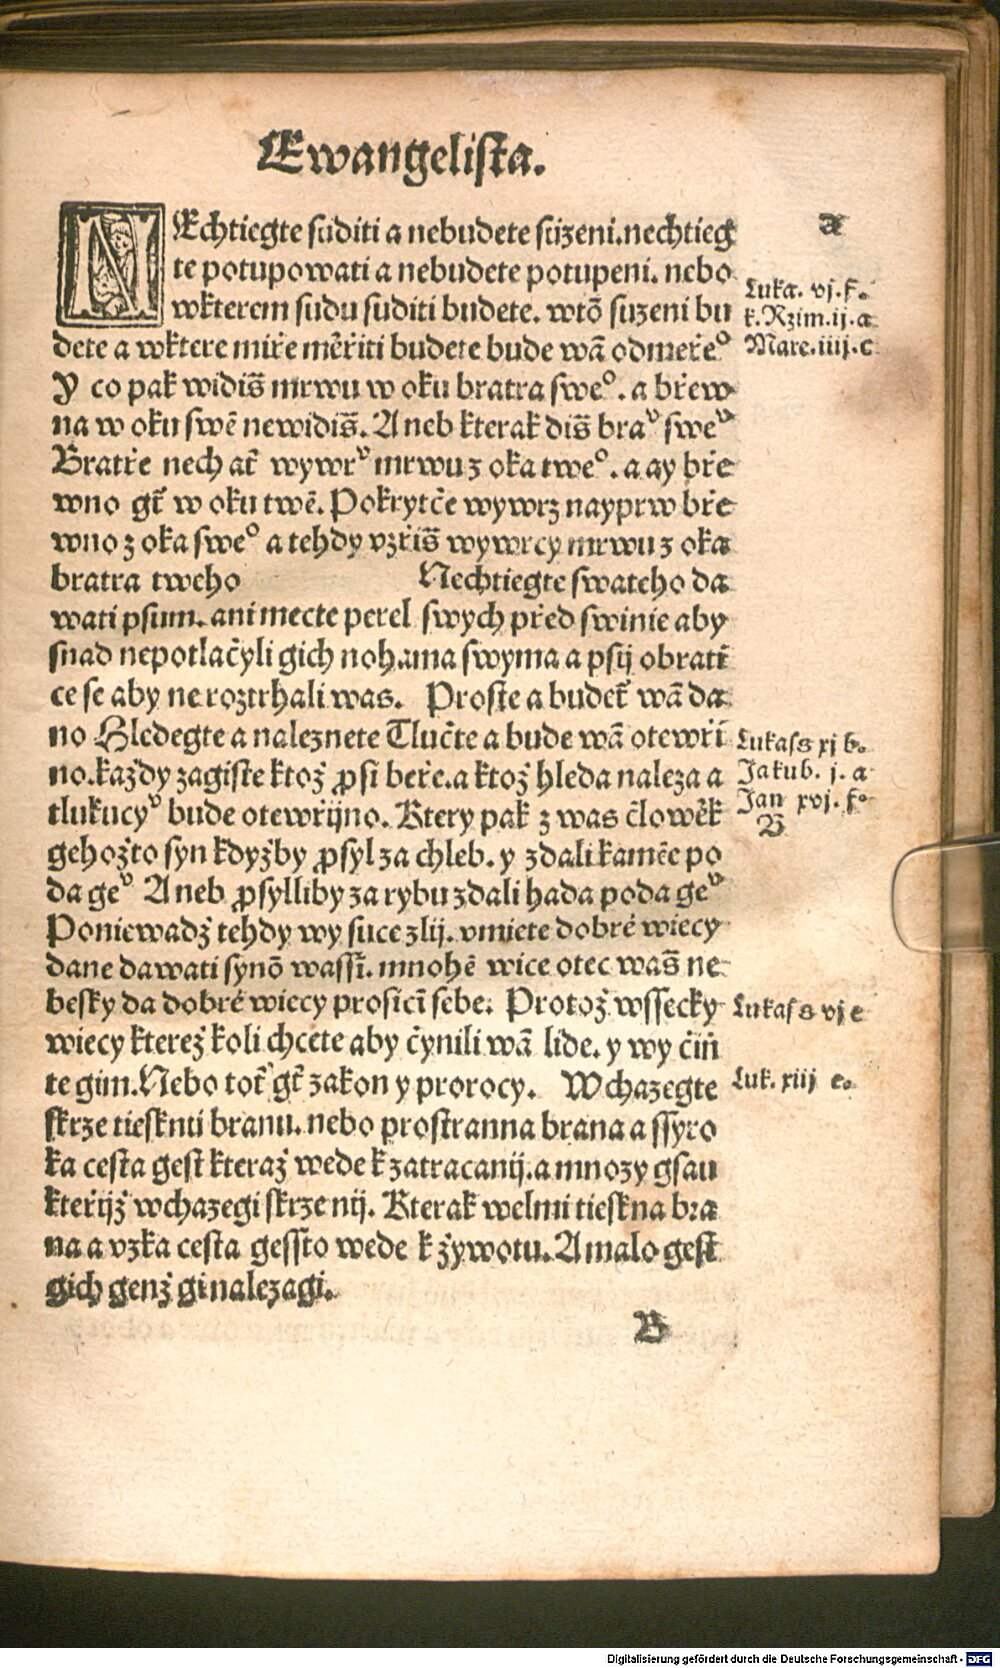 Ewangelista.
NEchtiegte suditi a nebudete suzeni. nechtieg
te potupowati a nebudete potupeni. nebo
wkterem sudu suditi budete. wtō suzeni bu
dete a wktere mirˇe mēřiti budete bude wā odmeřeº
Y co pak widiš mrwu w oku bratra sweº. a břew
na w oku swē newidiš. Aneb kterak diš braᵛ sweᵛ
Bratře nech ať wywrᵛ mrwu z oka tweº. a ay bře
wno gť w oku twē. Pokrytče wywrz nayprw bře
wno z oka sweº a tehdy vzřiš wywrcy mrwu z oka
bratra tweho Nechtiegte swateho da
wati psum. ani mecte perel swych před swinie aby
snad nepotlačyli gich nohama swyma a psij obrati
ce se aby ne roztrhali was. Proste a budeť wā da
no Hledegte a naleznete Tlučte a bude wā otewři
no. každy zagiste ktož ꝓsi beře. a ktož hleda naleza a
tlukucyᵛ bude otewřijno. Ktery pak z was člowěk
gehožto syn kdyžby ꝓsyl za chleb. y zdali kamēe po
da geᵛ Aneb ꝓsylliby za rybu zdali hada poda geᵛ
Poniewadž tehdy wy suce zlij. vmiete dobré wiecy
dane dawati synō wassī. mnohē wice otec waš ne
besky da dobré wiecy prosicī sebe. Protož wssecky
wiecy kterež koli chcete aby čynili wā lide. y wy čiň
te gim. Nebo toť gť zakon y prorocy. Wchazegte
skrze tiesknu branu. nebo prostranna brana a ssyro
ka cesta gest kteraž wede k zatracanij. a mnozy gsau
kteřijž wchazegi skrze nij. Kterak welmi tieskna bra
na a vzka cesta gessto wede k žywotu. A malo gest
gich genž gi nalezagi.
B
a
Luka. vj. f.
k. Rzim. ij. a
Mare. iiij. c
Lukass xj b.
Jakub. j. a
Jan xvj. f.
B
Lukass vj e
Luk. xiij e.
Digitalisierung gefördert durch die Deutsche Forschungsgemeinschaft - DFG